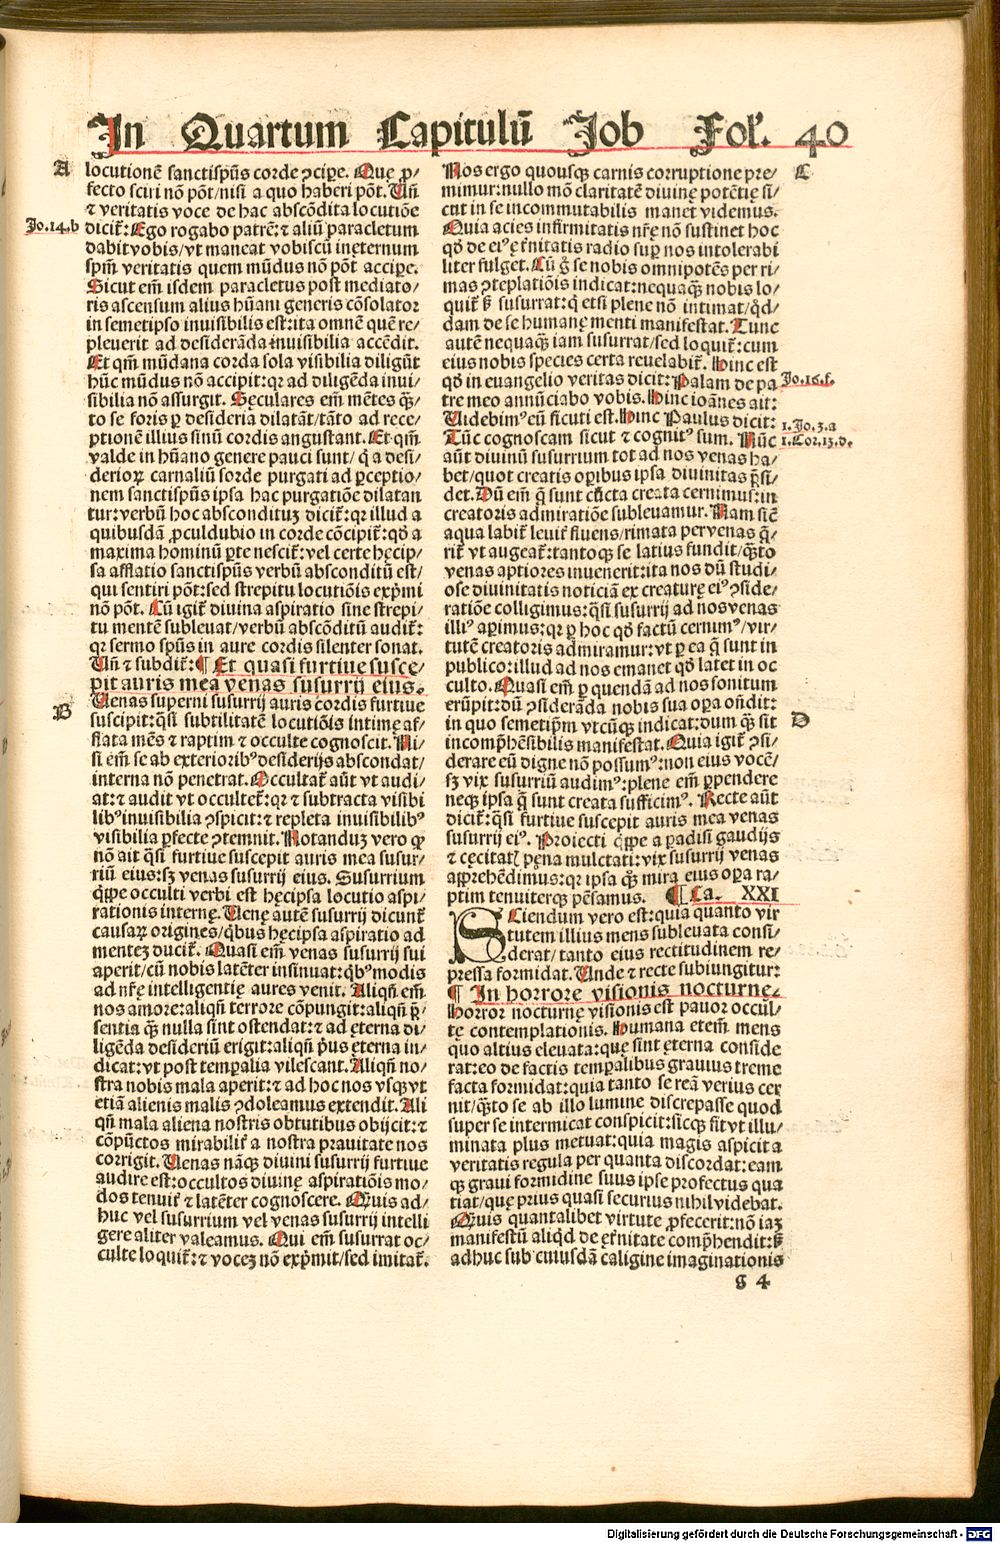 In Quartum Capitulū Job Fol'. 40
A
locutionē sanctispūs corde ꝯcipe. Quę ꝓ/
fecto sciri nō pōt/nisi a quo haberi pōt. Un̄
⁊ veritatis voce de hac abscōdita locutiōe
Jo.14.b
dicit᷑: Ego rogabo patrē: ⁊ aliū paracletum
dabit vobis/vt maneat vobiscū ineternum
spm̄ veritatis quem mūdus nō pōt accipe.
Sicut em̄ isdem paracletus post mediato/
ris ascensum alius hūani generis cōsolator
in semetipso inuisibilis est: ita omnē quē re/
pleuerit ad desiderāda inuisibilia accēdit.
Et qm̄ mūdana corda sola visibilia diligūt
hūc mūdus nō accipit: qꝛ ad diligēda inui/
sibilia nō assurgit. Sęculares em̄ mētes q̄ʒ/
to se foris ꝑ desideria dilatāt/tāto ad rece/
ptionē illius sinū cordis angustant. Et qm̄
valde in hūano genere pauci sunt/ q̇ a desi/
derioꝝ carnaliū sorde purgati ad ꝑceptio/
nem sanctispūs ipsa hac purgatiōe dilatan
tur: verbū hoc abscondituʒ dicit᷑: qꝛ illud a
quibusdā ꝓculdubio in corde cōcipit᷑: qđ a
maxima hominū ꝑte nescit᷑: vel certe hęcip/
sa afflatio sanctispūs verbū absconditū est/
qui sentiri pōt: sed strepitu locutiōis exp̄mi
nō pōt. Cū igit᷑ diuina aspiratio sine strepi/
tu mentē subleuat/verbū abscōditū audit᷑:
qꝛ sermo spūs in aure cordis silenter sonat.
Un̄ ⁊ subdit᷑: ¶ Et quasi furtiue susce/
pit auris mea venas susurrij eius.
B
Uenas superni susurrij auris cordis furtiue
suscipit: q̄si subtilitatē locutiōis intimę af/
flata mēs ⁊ raptim ⁊ occulte cognoscit. Ni/
si em̄ se ab exteriorib⁹ desiderijs abscondat/
interna nō penetrat. Occultat᷑ aūt vt audi/
at: ⁊ audit vt occultet᷑: qꝛ ⁊ subtracta visibi
lib⁹ inuisibilia ꝯspicit: ⁊ repleta inuisibilib⁹
visibilia ꝑfecte ꝯtemnit. Notanduʒ vero ꝙ
nō ait q̄si furtiue suscepit auris mea susur/
riū eius: sʒ venas susurrij eius. Susurrium
q̄ppe occulti verbi est hęcipsa locutio aspi/
rationis internę. Uenę autē susurrij dicunt᷑
causaꝝ origines/q̇bus hęcipsa aspiratio ad
menteʒ ducit᷑. Quasi em̄ venas susurrij sui
aperit/cū nobis latēter insinuat: q̇b⁹ modis
ad nr̄ę intelligentię aures venit. Aliqn̄ em̄
nos amore: aliqn̄ terrore cōpungit: aliqn̄ p̄/
sentia q̄ʒ nulla sint ostendat: ⁊ ad ęterna di/
ligēda desideriū erigit: aliqn̄ p̄us ęterna in/
dicat: vt post temꝑalia vilescant. Aliqn̄ no/
stra nobis mala aperit: ⁊ ad hoc nos vsqʒ vt
etiā alienis malis ꝯdoleamus extendit. Ali
qn̄ mala aliena nostris obtutibus obijcit: ⁊
cōpūctos mirabilit᷑ a nostra prauitate nos
corrigit. Uenas nāqʒ diuini susurrij furtiue
audire est: occultos diuinę aspiratiōis mo/
dos tenuit᷑ ⁊ latēter cognoscere. Quis ad/
huc vel susurrium vel venas susurrij intelli
gere aliter valeamus. Qui em̄ susurrat oc/
culte loquit᷑: ⁊ voceʒ nō exp̄mit/sed imitat᷑.
C
Nos ergo quousqʒ carnis corruptione pre/
mimur: nullo mō claritatē diuinę potētię si/
cut in se incommutabilis manet videmus.
Quia acies infirmitatis nr̄ę nō sustinet hoc
qđ de ei⁹ ęt᷑nitatis radio suꝑ nos intolerabi
liter fulget. Cū g̊ se nobis omnipotēs per ri/
mas ꝯtēplatiōis indicat: nequaqʒ nobis lo/
quit᷑ sʒ susurrat: q̇ etsi plene nō intimat/q̇d/
dam de se humanę menti manifestat. Tunc
autē nequaqʒ iam susurrat/sed loquit᷑: cum
eius nobis species certa reuelabit᷑. Hinc est
qđ in euangelio veritas dicit: Palam de pa
Jo.16.f.
tre meo annūciabo vobis. Hinc ioānes ait:
Uidebim⁹ eū sicuti est. Hinc Paulus dicit:
1.Jo.3.a
Tūc cognoscam sicut ⁊ cognit⁹ sum. Nūc
1.Cor.13.d.
aūt diuinū susurrium tot ad nos venas ha/
bet/quot creatis oꝑibus ipsa diuinitas p̄si/
det. Dū em̄ q̄ sunt cūcta creata cernimus: in
creatoris admiratiōe subleuamur. Nam sic̄
aqua labit᷑ leuit᷑ fluens/rimata per venas q̄/
rit᷑ vt augeat᷑: tantoqʒ se latius fundit/q̄ʒto
venas aptiores inuenerit: ita nos dū studi/
ose diuinitatis noticiā ex creaturę ei⁹ ꝯside/
ratiōe colligimus: q̄si susurrij ad nos venas
illi⁹ aꝑimus: qꝛ ꝑ hoc qđ factū cernim⁹/vir/
tutē creatoris admiramur: vt ꝑ ea q̄ sunt in
publico: illud ad nos emanet qđ latet in oc
culto. Quasi em̄ ꝑ quendā ad nos sonitum
erūpit: dū ꝯsiderāda nobis sua oꝑa on̄dit:
D
in quo semetipm̄ vtcūqʒ indicat: dum q̄ʒ sit
incomp̄hēsibilis manifestat. Quia igit᷑ ꝯsi/
derare eū digne nō possum⁹: non eius vocē/
sʒ vix susurriū audim⁹: plene em̄ ꝑpendere
neqʒ ipsa q̄ sunt creata sufficim⁹. Recte aūt
dicit᷑: q̄si furtiue suscepit auris mea venas
susurrij ei⁹. Proiecti q̄ppe a ꝑadisi gaudijs
⁊ cęcitatꝭ pęna mulctati: vix susurrij venas
app̄rehēdimus: qꝛ ipsa q̄ʒ mira eius oꝑa ra/
ptim tenuiterqʒ pēsamus. ¶ Ca. XXI
SCiendum vero est: quia quanto vir
tutem illius mens subleuata consi/
derat/tanto eius rectitudinem re/
pressa formidat. Unde ⁊ recte subiungitur:
¶ In horrore visionis nocturne.
Horror nocturnę visionis est pauor occul/
tę contemplationis. Humana etem̄ mens
quo altius eleuata: quę sint ęterna conside
rat: eo de factis temꝑalibus grauius treme
facta formidat: quia tanto se reā verius cer
nit/q̄ʒto se ab illo lumine discrepasse quod
super se intermicat conspicit: sicqʒ fit vt illu/
minata plus metuat: quia magis aspicit a
veritatis regula per quanta discordat: eam
qʒ graui formidine suus ipse profectus qua
tiat/quę prius quasi securius nihil videbat.
Quis quantalibet virtute ꝓfecerit: nō iaʒ
manifestū aliqd̄ de ęt᷑nitate comp̄hendit: sʒ
adhuc sub cuiusdā caligine imaginationis
g 4
Digitalisierung gefördert durch die Deutsche Forschungsgemeinschaft - DFG